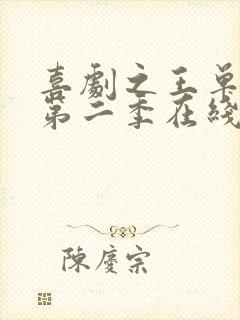 喜劇之王單
第二季在綫
陳慶宗